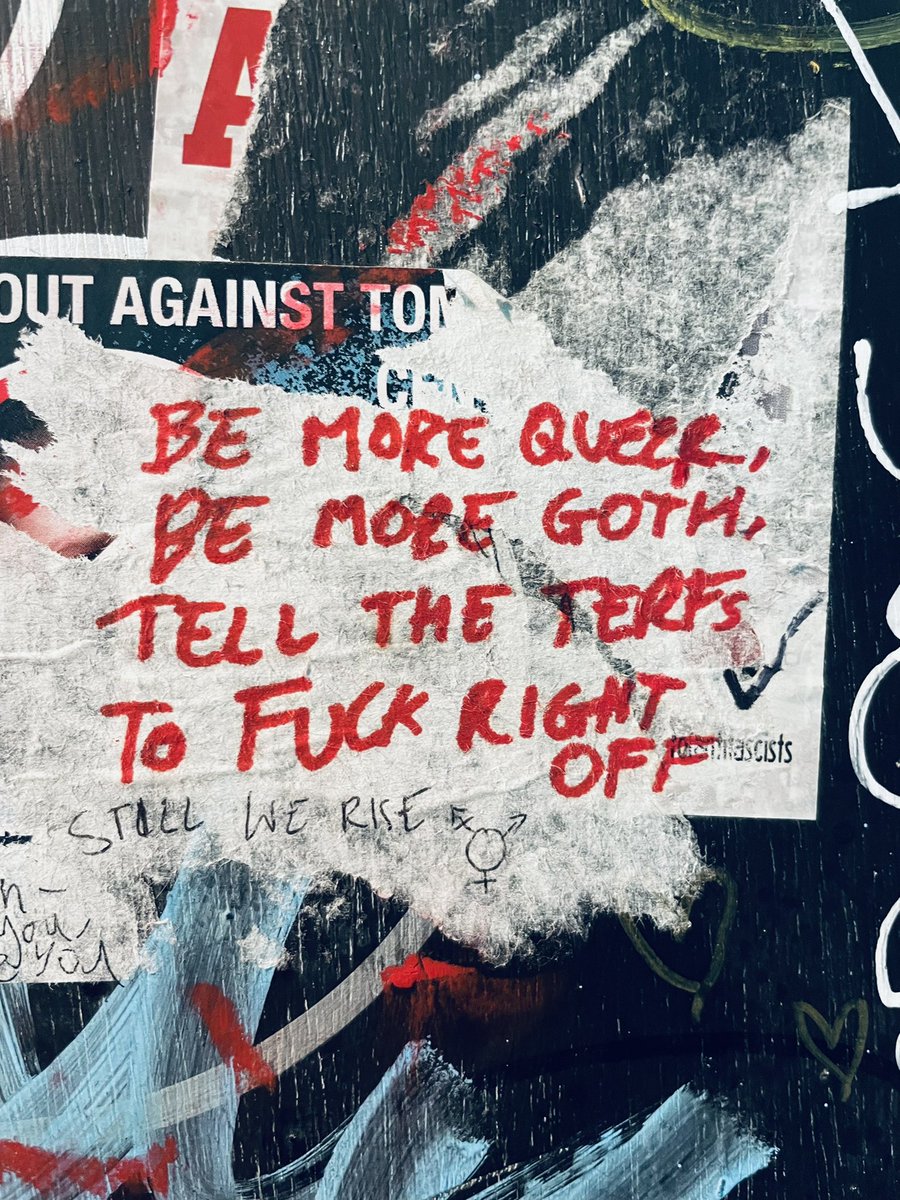 A
OUT AGAINST
BE MORE QUEER,
BE MORE GOTH,
TELL THE TERFS
TO FUCK RIGHT
OFF
STILL WE RISE
you
you